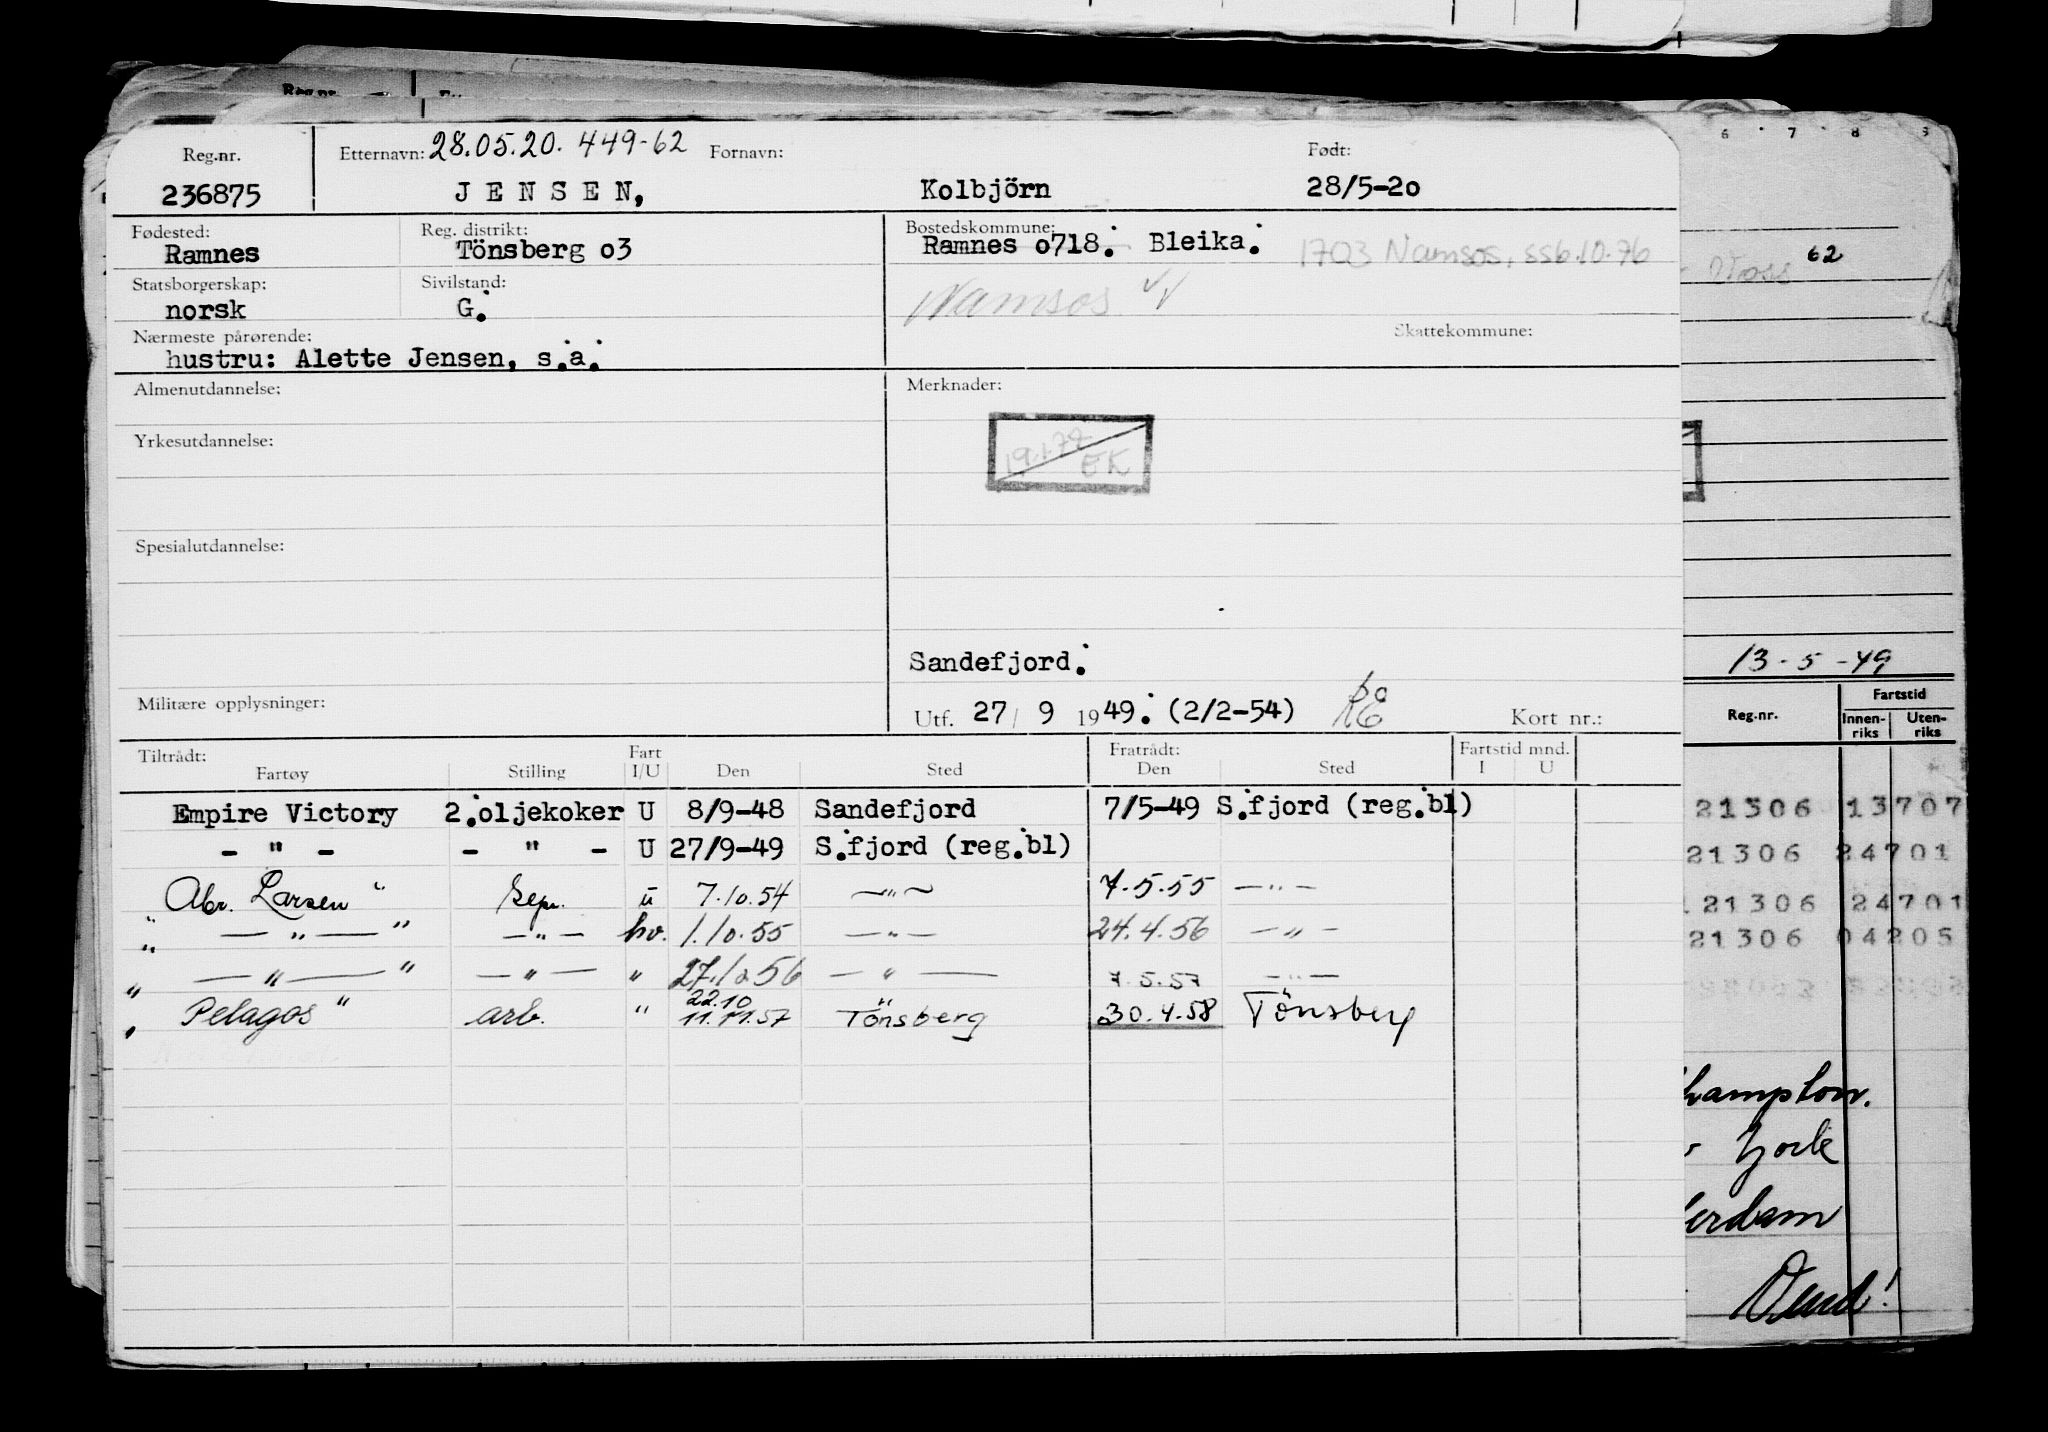 Reg.nr. Etternavn: 28.05.20. 449-62 Fornavn: Født:
236875 JENSEN, Kolbjörn 28/5-20
Fødested: Reg. distrikt: Bostedskommune:
Ramnes Tönsberg o3 Ramnes o718. Bleika. 1703 Namsos, ss6.10.76
Statsborgerskap: Sivilstand:
norsk G. Namsos
Nærmeste pårørende: Skattekommune:
hustru: Alette Jensen, s.a.
Almenutdannelse: Merknader:
19.1.77
EK
Yrkesutdannelse:
Spesialutdannelse:
Sandefjord.
Militære opplysninger: Utf. 27/ 9 1949. (2/2-54) Kort nr.:
Tiltrådt: Fart Fratrådt: Fartstid mnd.
Fartøy Stilling I/U Den Sted Den Sted I U
Empire Victory 2.oljekoker U 8/9-48 Sandefjord 7/5-49 S.fjord (reg.bl)
- " - - " - U 27/9-49 S.fjord (reg.bl)
" Abr. Larsen" u 7.10.54 -"- 7.5.55 -"-
" - " - " - " - hv. 1.10.55 - " - 24.4.56 - " -
" - " - " - " - " 27.10 56 - " - 7.5.57 - " -
22.10
" Pelagos " arb. " 11.11.57 Tönsberg 30.4.58 Tönsberg
6 7 8
62
13-5-49
Reg.nr. Fartstid
Innen-riks Uten-riks
21306 13707
21306 24701
21306 24701
21306 04205
hampton.
York
erdam